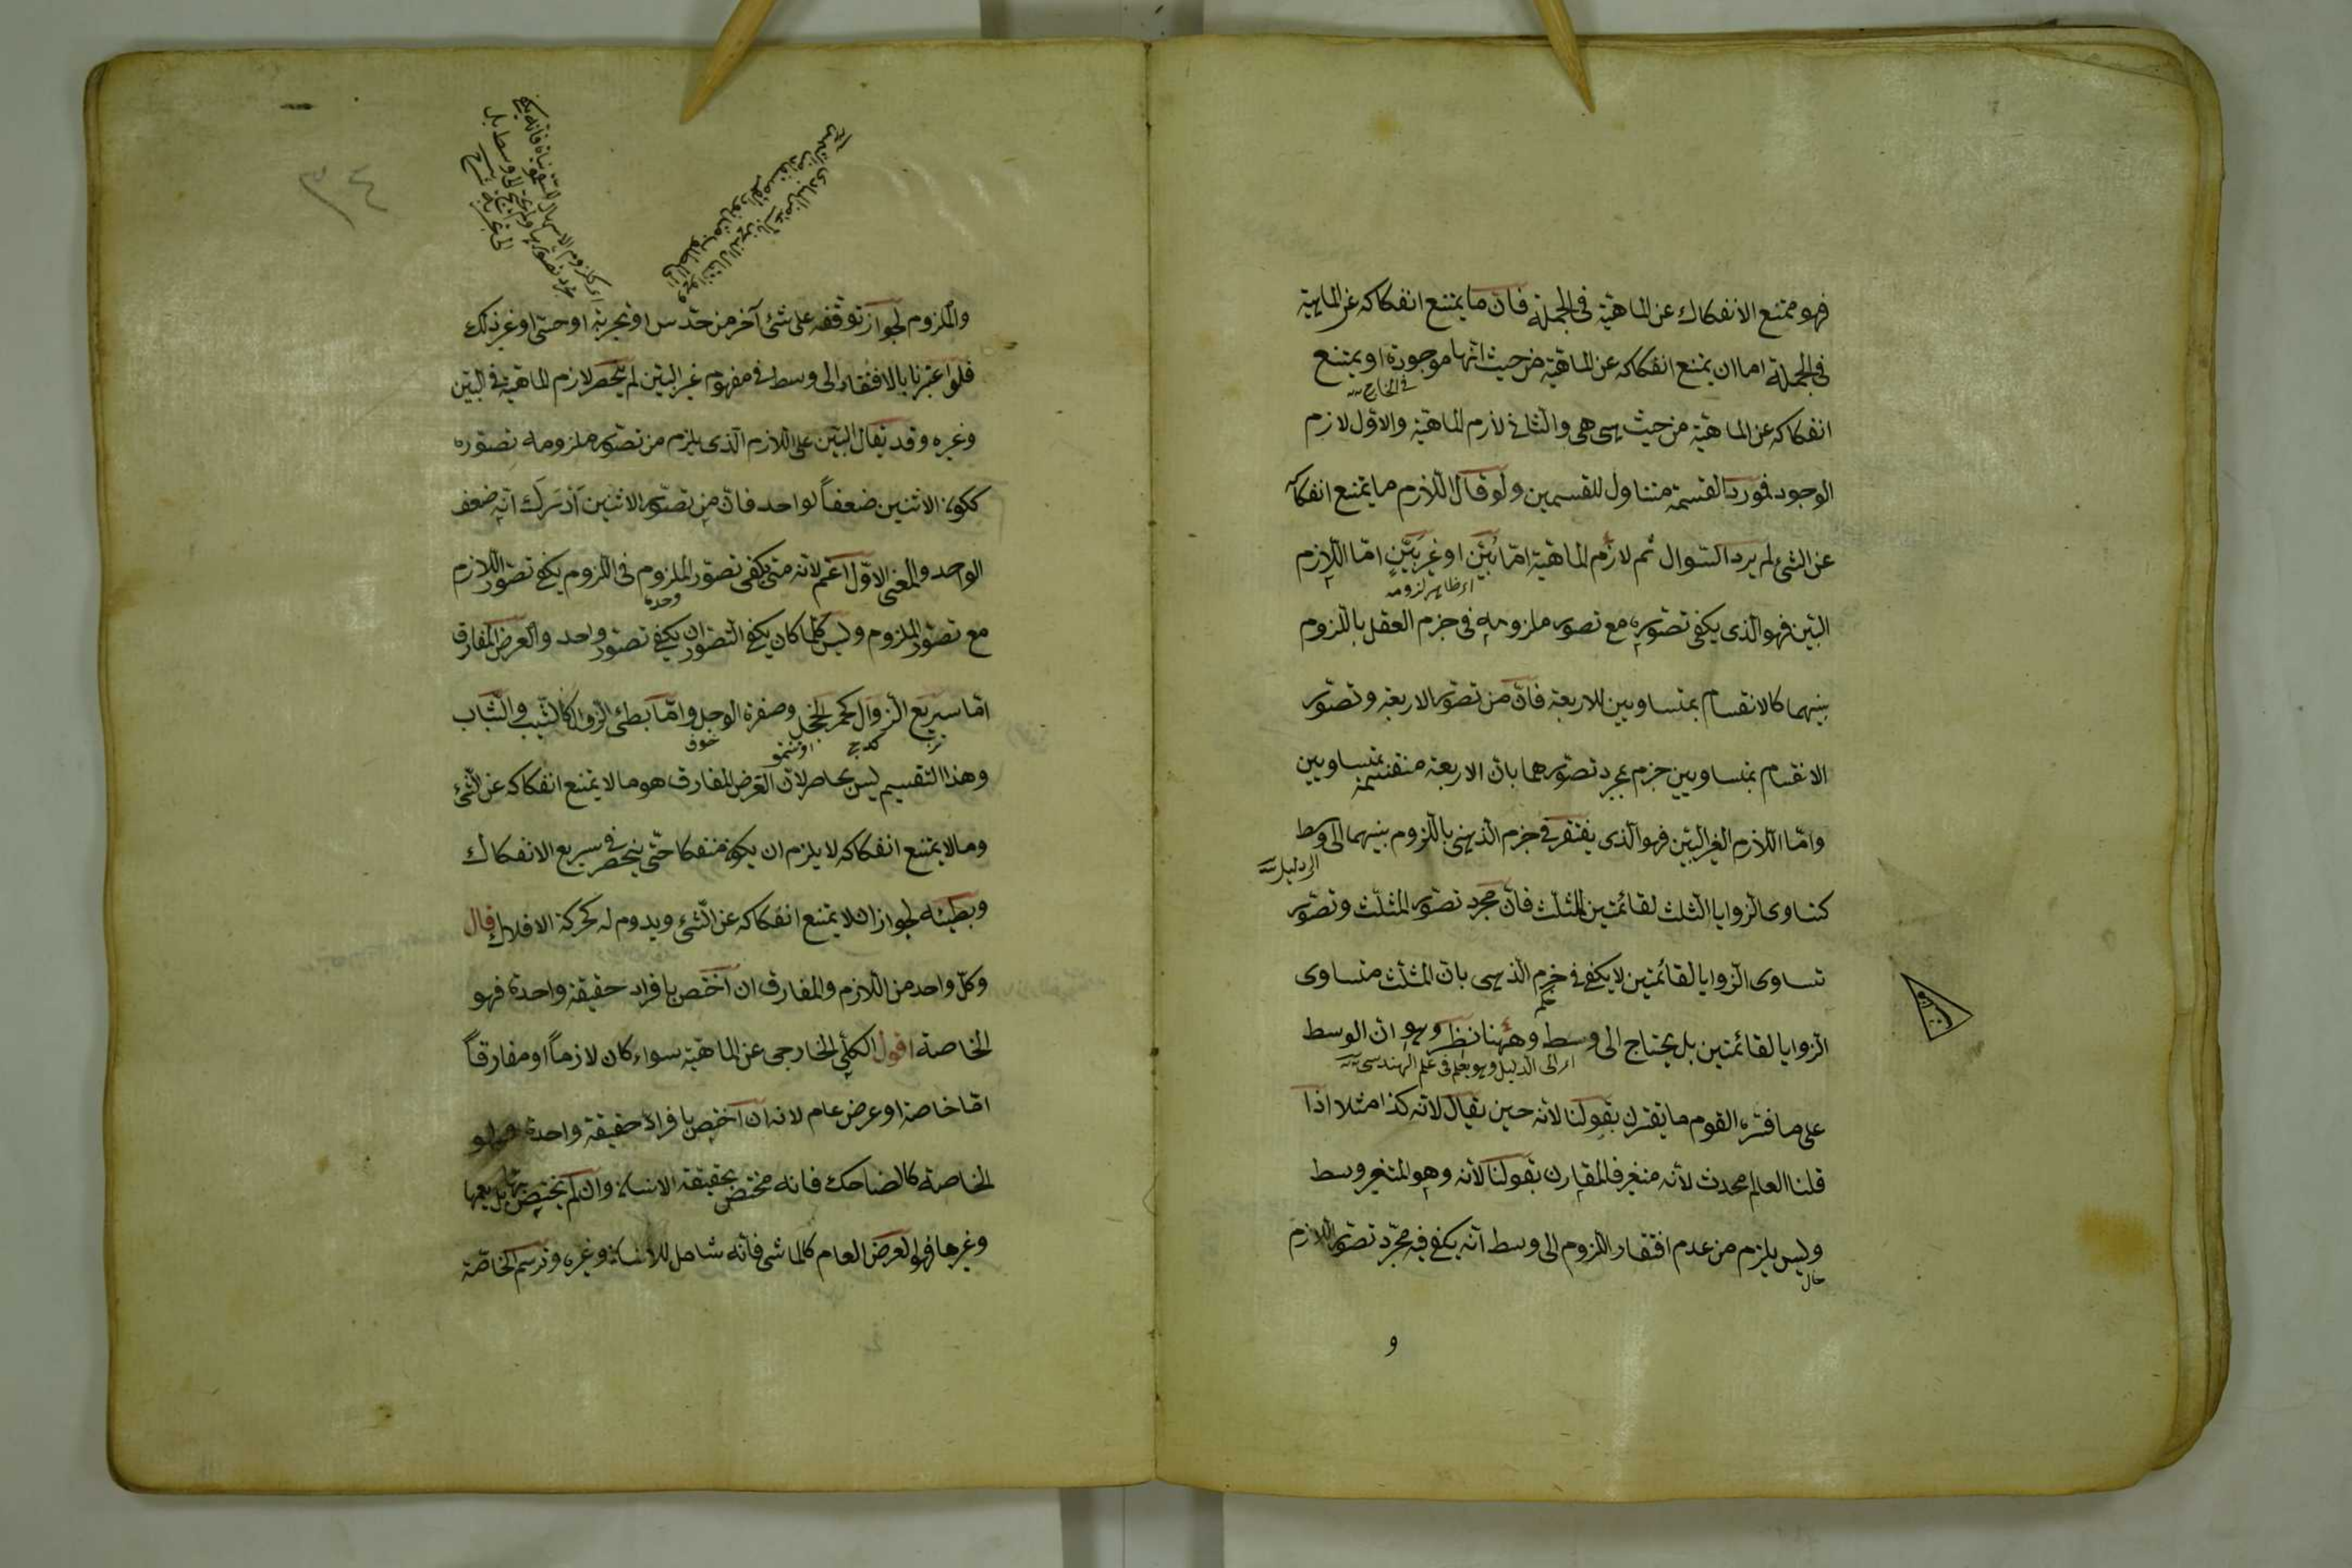 فهو ممتنع الانفكاك عن الماهية في الجملة فان ما يمتنع انفكاكه عن الماهية
في الجملة اما ان يمتنع انفكاكه عن الماهية من حيث انها موجودة او يمتنع
في الخارج
انفكاكه عن الماهية من حيث هي هي والثاني لازم الماهية والاول لازم
الوجود فمورد القسمة متناول للقسمين ولو قال اللازم ما يمتنع انفكاكه
عن الشئ لم يرد السوال ثم لازم الماهية امّا بيّن او غير بيّن امّا اللازم
اى ظاهر لزومه
البيّن فهو الذى يكفى تصوره مع تصور ملزومه فى جزم العقل باللزوم
بينهما كالانقسام بمتساويين للاربعة فانّ من تصوّر الاربعة وتصوّر
الانقسام بمتساويين جزم بمجرد تصوّرهما بان الاربعة منقسمة بمتساويين
وامّا اللازم الغير البيّن فهو الذى يفتقر فى جزم الذهن باللزوم بينهما الى وسط
اى دليل
كتساوى الزوايا الثلث لقائمتين للمثلّث فانّ مجرد تصوّر المثلّث وتصوّر
تساوى الزوايا لقائمتين لا يكفى فى جزم الذهن بان المثلّث متساوى
الزوايا لقائمتين بل يحتاج الى وسط وههنا نظر وهو ان الوسط
اى الى الدليل وهو يعلم فى علم الهندسى
على ما فسّره القوم ما يقترن بقولنا لانه حين يقال لانّه كذا مثلا اذا
قلنا العالم محدث لانّه متغير فالمقارن بقولنا لانّه وهو المتغير وسط
وليس يلزم من عدم افتقار اللزوم الى وسط انّه يكفى فيه مجرّد تصوّر اللازم
حال
و
٣٤
والملزوم لجواز توقّفه على شئ آخر من حدس او تجربة او حسّ او غير ذلك
فلو اعتبرنا بالافتقار الى وسط فى مفهوم غير البيّن لم ينحصر لازم الماهية فى البيّن
وغيره وقد يقال البيّن على اللازم الّذى يلزم من تصوّر ملزومه تصوّره
ككون الاثنين ضعفاً لواحد فانّ من تصوّر الاثنين أدرك انّه ضعف
الواحد والمعنى الاوّل اعمّ لانّه متى يكفى تصوّر الملزوم فى اللزوم يكفى تصوّر اللازم
وحده
مع تصوّر الملزوم وليس كلّما كان يكفى التصوّران يكفى تصوّر واحد والعرض المفارق
امّا سريع الزوال كحمرة الخجل وصفرة الوجل وامّا بطئ الزوال كالشيب والشباب
خوف
وهذا التقسيم ليس بحاصر لانّ العرض المفارق هو ما لا يمتنع انفكاكه عن الشئ
وما لا يمتنع انفكاكه لا يلزم ان يكون منفكا حتّى ينحصر فى سريع الانفكاك
وبطيئه لجواز ان لا يمتنع انفكاكه عن الشئ ويدوم له كحركة الافلاك قال
وكلّ واحد من اللازم والمفارق ان اختص بافراد حقيقة واحدة فهو
الخاصة اقول الكلّى الخارجى عن الماهية سواء كان لازماً او مفارقاً
امّا خاصة او عرض عام لانه ان اختص بافراد حقيقة واحدة فهو
الخاصة كالضاحك فانه مختص بحقيقة الانسان وان لم يختصّ بها بل يعمّها
وغيرها فهو العرض العام كالماشى فانّه شامل للانسان وغيره وترسم الخاصّة